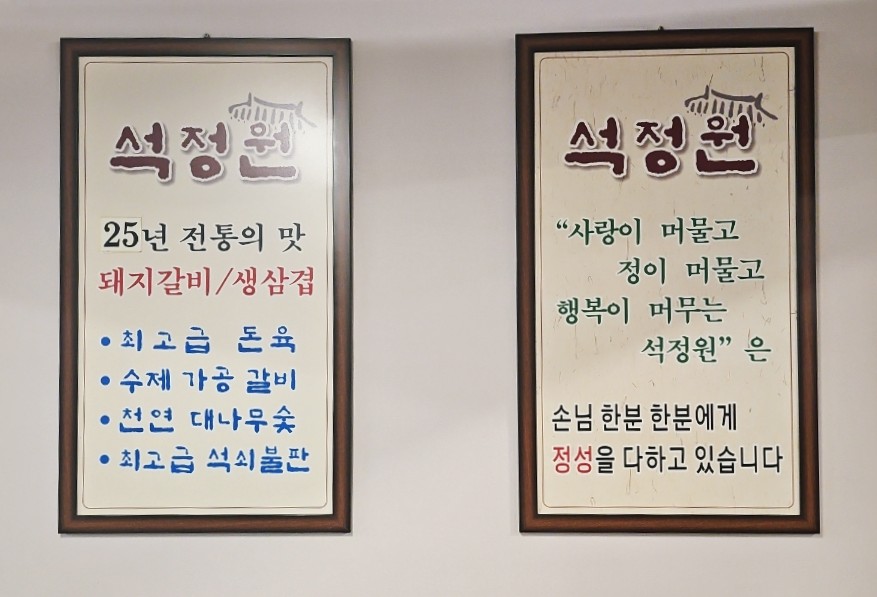 석정원
25년 전통의 맛
돼지갈비/생삼겹
• 최고급 돈육
• 수제 가공 갈비
• 천연 대나무숯
• 최고급 석쇠불판
석정원
“사랑이 머물고
정이 머물고
행복이 머무는
석정원” 은
손님 한분 한분에게
정성을 다하고 있습니다